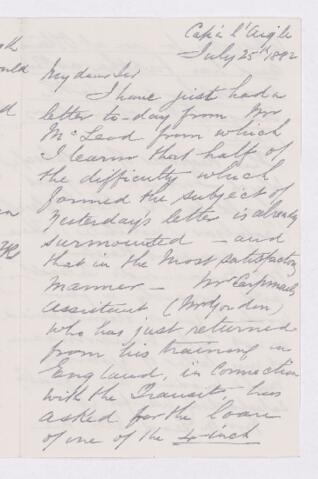 Cap à l'Aigle
July 25th 1892
My dear Sir
I have just had a
letter to-day from Mr
McLeod from which
I learn that half of
the difficulty which
formed the subject of
yesterday's letter is already
surmounted - and
that in the most satisfactory
manner - Mr Carpmael's
assistant (Mr Gordon)
who has just returned
from his training in
England, in connection
with the Transit has
asked for the loan
of one of the 4-inch